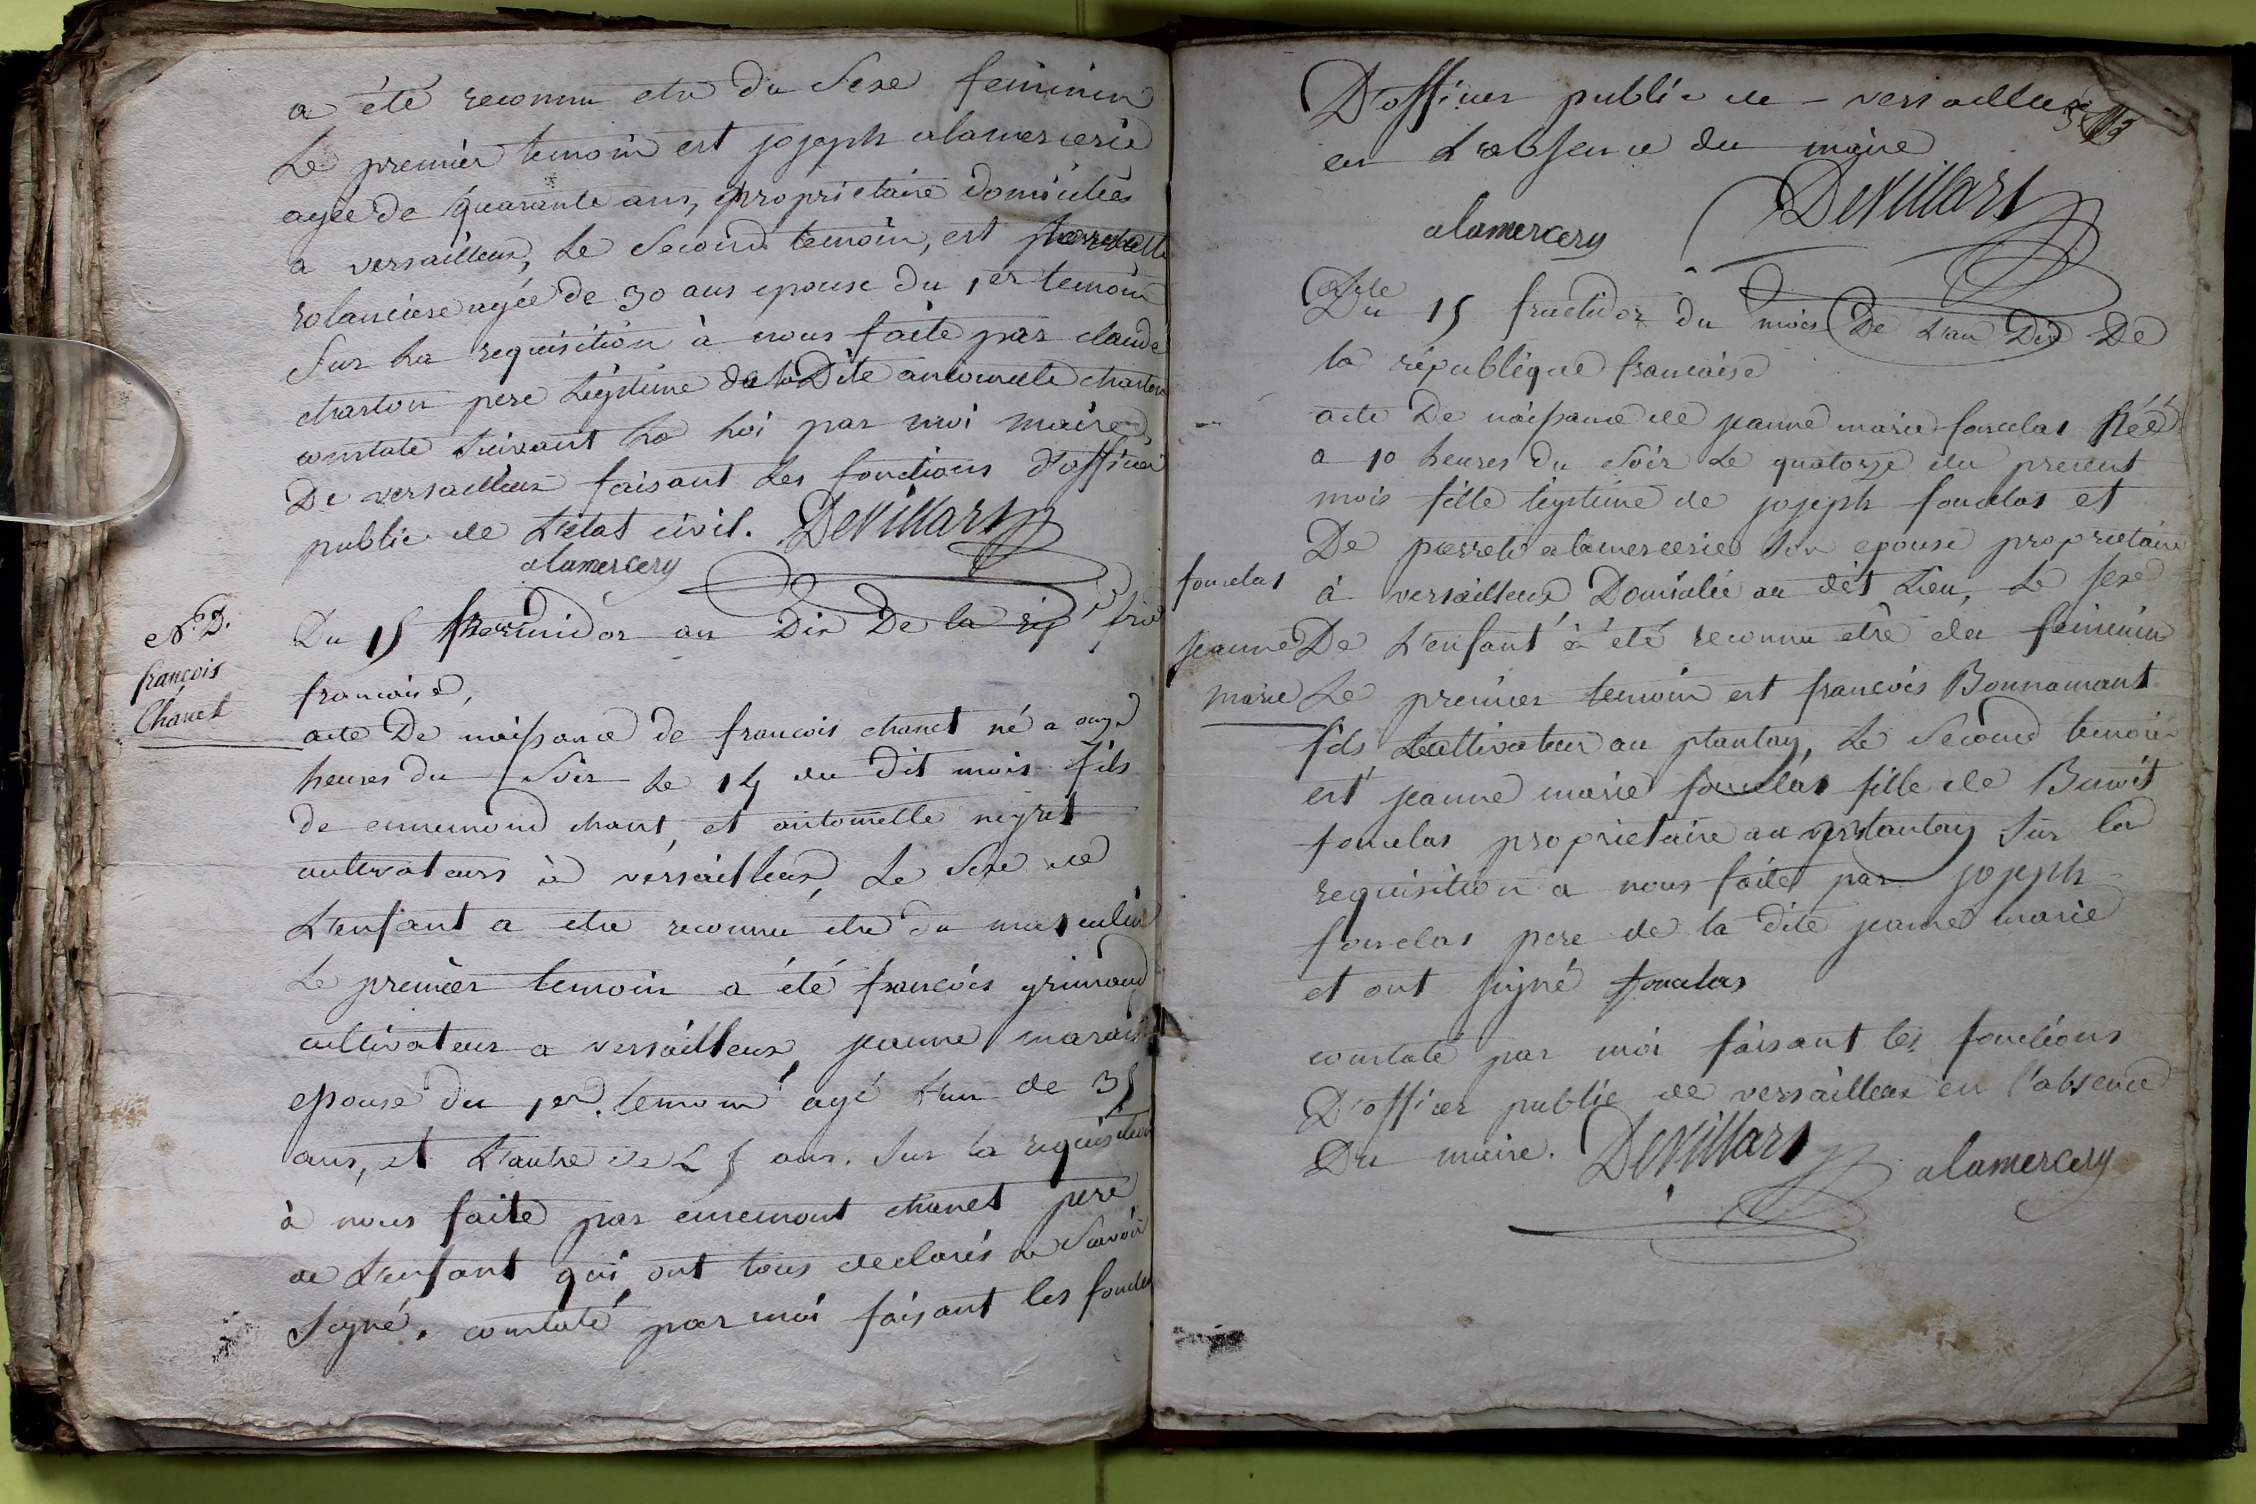 a été reconnu etre du Sexe feminin
Le premier temoin est joseph alamercerie
agée de quarante ans, proprietaire domiciliés
a versailleux, Le Second temoin, est pierrette
rolanciere agée de 30 ans epouse du 1er temoin
Sur La requisition à nous faite par claude
charton pere Légitime de la Dite antoinette charton
constate Suivant La Loi par moi maire
De versailleux faisant Les fonctions d'officier
public de L'etat civil. DeVillars
alamercery
N.D.
françois
Chanet
Du 15 thermidor an Dix De la rep
francaise,
acte De naissance de francois chanet né a onze
heures du Soir Le 14 du dit mois fils
de ennemond chanet, et antoinette negret
cultivateurs à versailleux, Le Sexe de
L'enfant a etre reconnu etre du masculin
Le premier temoin a été francois grimaud
cultivateur a versailleux, jeanne marais
epouse du 1er. temoin agé L'un de 35
ans, et L'autre de 25 ans. Sur la requisition
à nous faite par ennemont chanet pere
de L'enfant qui ont tous declarés ne Savoir
Signé. constaté par moi faisant les fonctions
D'officier public de - versailleux
en L'absence du maire
DeVillars
alamercery
Du 15 fructidor du mois De L'an Dix De
la république francaise
acte De naissance de jeanne marie fouclas Néé
a 10 heures du Soir Le quatorze du present
mois fille légitime de joseph fouclas et
De pierrette alamercerie Son epouse proprietaire
à versailleux Domicilié au dit Lieu, Le Sexe
fouclas
jeanne
marie
De L'enfant à été reconnu etre du feminin
Le premier temoin est francois Bonnamant
fils Cultivateur au plantay, Le Second temoin
est jeanne marie fouclas fille de Benoit
fouclas proprietaire au plantay Sur la
requisition a nous faite par joseph
fouclas pere de la dite jeanne marie
et ont signé fouclas
constaté par moi faisant les fonctions
D'officier public de versailleux en l'absence
Du maire. DeVillars alamercery